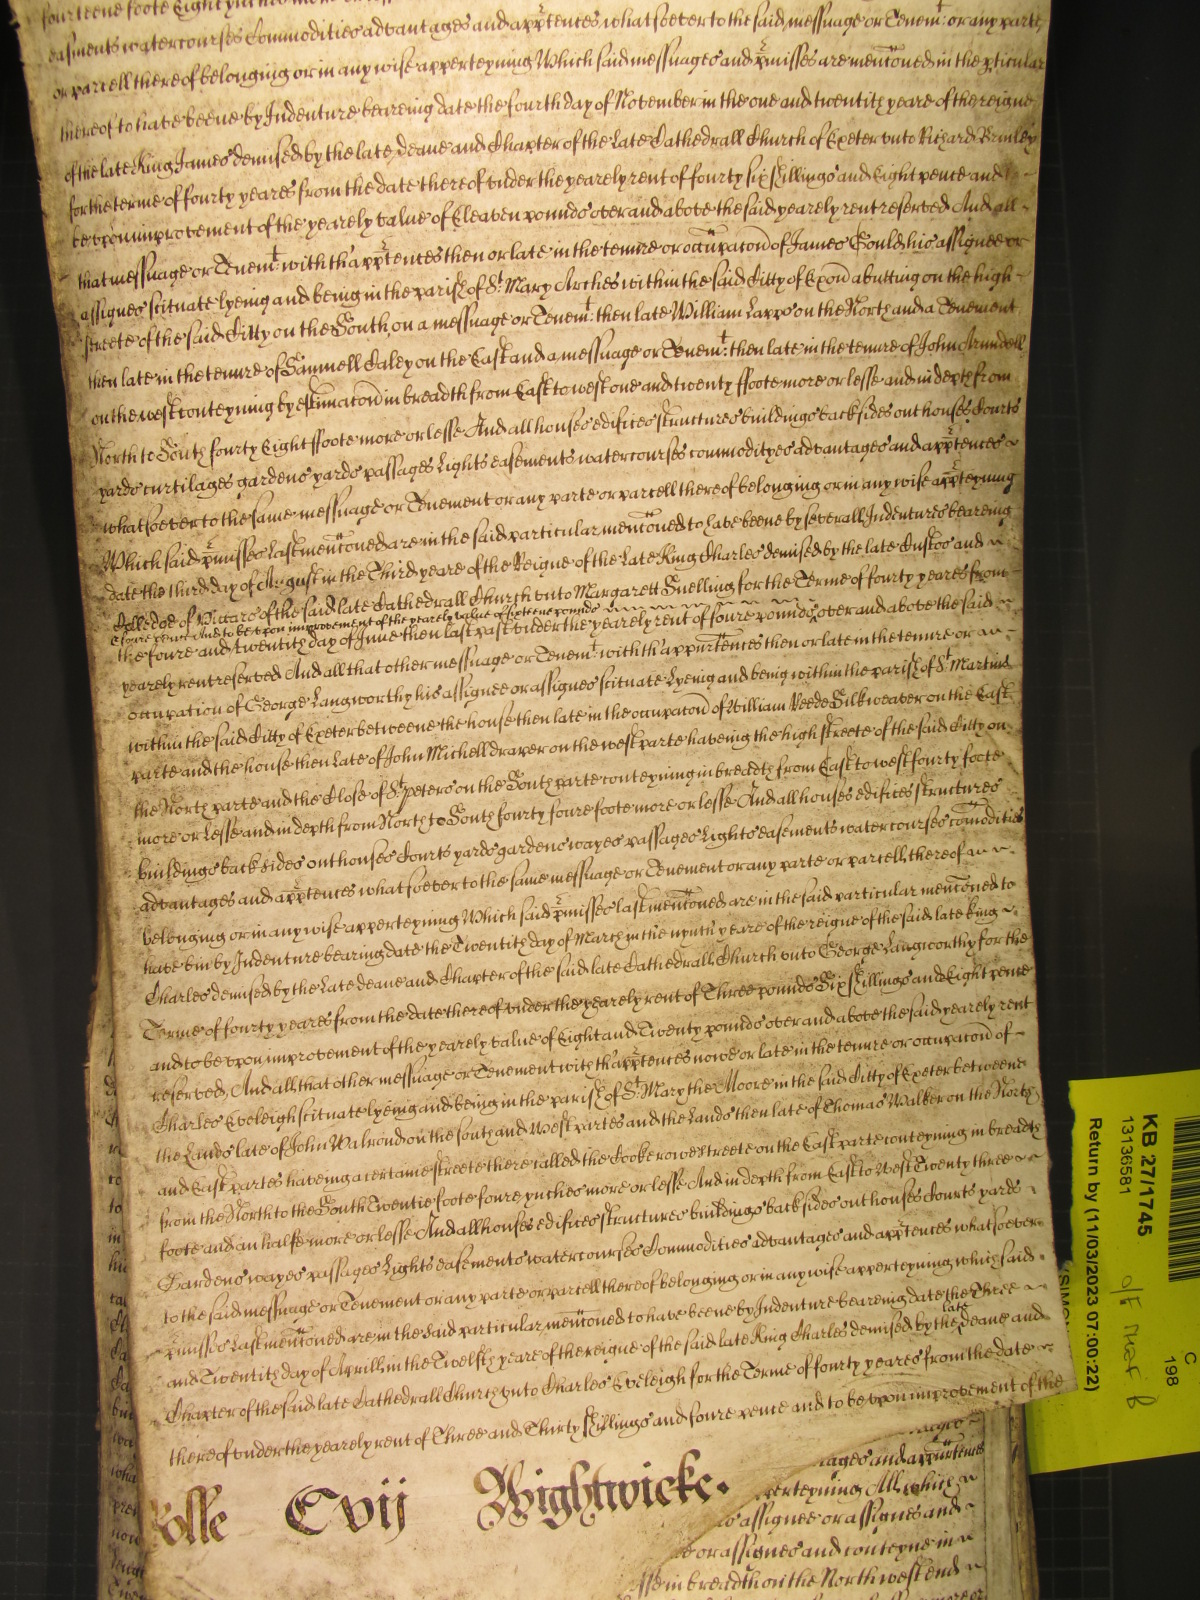 fourteene foote Eight ynches more or lesse
easments watercourses Commodities advantages and app̱tences whatsoever to the said messuage or Tenemt: or any parte
or parcell thereof belonging or in any wise apperteyning Which said messuages and p̱misses are menc̄oned in the p̱ticular
thereof to have beene by Indenture beareing date the fourth day of November in the one and twentith yeare of the reigne
of the late King James demised by the late Deane and Chapter of the Late Cathedrall Church of Exeter vnto Richard Brinley
for the terme of fourty yeares from the date thereof vnder the yearely rent of fourty six shillings and Eight pence and
be vpon improvement of the yearely value of Eleaven pounds over and above the said yearely rent reserved And all
that messuage or Tenemt: with th'app̱tences then or late in the tenure or occupac̄on of James Gould his assignee or
assignes scituate lyeing and being in the parish of St. Mary Arches within the said Citty of Exon abutting on the high
streete of the said Citty on the South, on a messuage or Tenemt: then late William Lapps on the North and a Tenement
then late in the tenure of Sammell Caley on the East and a messuage or Tenemt: then late in the tenure of John Arundell
on the west conteyning by estimac̄on in breadth from East to west one and twenty ffoote more or lesse and in depth from
North to South fourty Eight ffoote more or lesse And all houses edifices structures buildings backsides outhouses Courts
yards curtilages gardens yards passages Lights easements watercourses commodityes advantages and app̱tences
whatsoever to the same messuage or Tenement or any parte or parcell thereof belonging or in any wise app̱teyning
Which said p̱misses Last menc̄oned are in the said particular menc̄oned to have beene by severall Indentures beareing
date the third day of August in the Third yeare of the Reigne of the Late King Charles demised by the late Custos and
Colledge of Vicars of the said late Cathedrall Church vnto Margarett Snelling for the Terme of fourty yeares from
foure pence And to be vpon improvement of the yearely value of sixteene pounds
the foure and twentith day of June then last past vnder the yearely rent of foure pounds over and above the said
yearely rent reserved And all that other messuage or Tenemt: with th'appurtences then or late in the tenure or
occupation of George Langworthy his assignee or assignes scituate Lyeing and being within the parish of St Martins
within the said Citty of Exeter betweene the house then late in the occupac̄on of William Reede Silkweaver on the East
parte and the house then Late of John Michell draper on the west parte haveing the high streete of the said Citty on
the North parte and the Close of St. peters on the South parte conteyning in breadth from East to west fourty foote
more or Lesse and in depth from North to South fourty foure foote more or lesse And all houses edifices structures
buildings backsides outhouses Courts yards gardens wayes passages Lights easements watercourses com̄odities
advantages and app̱tences whatsoever to the same messuage or Tenement or any parte or parcell thereof
belonging or in any wise apperteyning Which said p̱misses last menc̄oned are in the said particular menc̄oned to
have bin by Indenture bearing date the Twentith day of March in the nynth yeare of the reigne of the said late King
Charles demised by the Late deane and Chapter of the said late Cathedrall Church vnto George Langworthy for the
Terme of fourty yeares from the date thereof vnder the yearely rent of Three pounds Six shillings and Eight pence
and to be vpon improvement of the yearely value of Eight and Twenty pounds over and above the said yearely rent
reserved, And all that other messuage or Tenement with th'app̱tences nowe or late in the tenure or occupac̄on of
Charles Eveleigh scituate lyeing and being in the parish of St. Mary the Moore in the said Citty of Exeter betweene
the Lands late of John Walrond on the south and West partes and the Lands then late of Thomas Walker on the North
and East partes haveing a certaine streete there called the Cookerowe streete on the East parte conteyning in breadth
from the North to the South Twentie foote foure ynches more or lesse And in depth from East to West Twenty three
foote and an halfe more or lesse And all houses edifices structures buildings backsides outhouses Courts yards
Gardens wayes passages Lights easements watercourses Commodities advantages and app̱tences whatsoever
to the said messuage or Tenement or any parte or parcell thereof belonging or in any wise apperteyning which said
p̱misses Last menc̄oned are in the said particular menc̄oned to have beene by Indenture beareing date the Three
and Twentith day of Aprill in the Twelfth yeare of the reigne of the said late King Charles demised by the late deane and
Chapter of the said late Cathedrall Church vnto Charles Eveleigh for the Terme of fourty yeares from the date
thereof vnder the yearely rent of Three and Thirty shillings and foure pence and to be vpon improvement of the
Rolle Cvij Wightwicke.
ages and appurtences
perteyning All which
assignee or assignes and
or assignes and conteyne in
in breadth on the North west end
KB 27/1745
13136581
Return by (11/03/2023 07:00:22)
C
198